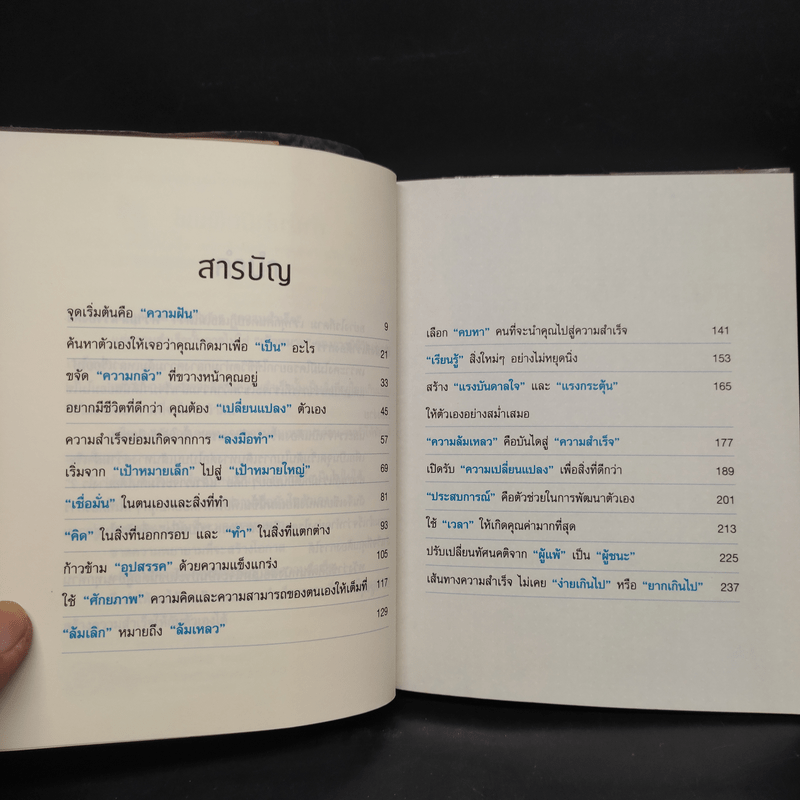 สารบัญ
จุดเริ่มต้นคือ “ความฝัน” 9
ค้นหาตัวเองให้เจอว่าคุณเกิดมาเพื่อ “เป็น” อะไร 21
ขจัด “ความกลัว” ที่ขวางหน้าคุณอยู่ 33
อยากมีชีวิตที่ดีกว่า คุณต้อง “เปลี่ยนแปลง” ตัวเอง 45
ความสำเร็จย่อมเกิดจากการ “ลงมือทำ” 57
เริ่มจาก “เป้าหมายเล็ก” ไปสู่ “เป้าหมายใหญ่” 69
“เชื่อมั่น” ในตนเองและสิ่งที่ทำ 81
“คิด” ในสิ่งที่นอกกรอบ และ “ทำ” ในสิ่งที่แตกต่าง 93
ก้าวข้าม “อุปสรรค” ด้วยความแข็งแกร่ง 105
ใช้ “ศักยภาพ” ความคิดและความสามารถของตนเองให้เต็มที่ 117
“ล้มเลิก” หมายถึง “ล้มเหลว” 129
เลือก “คบหา” คนที่จะนำคุณไปสู่ความสำเร็จ 141
“เรียนรู้” สิ่งใหม่ๆ อย่างไม่หยุดนิ่ง 153
สร้าง “แรงบันดาลใจ” และ “แรงกระตุ้น” 165
ให้ตัวเองอย่างสม่ำเสมอ
“ความล้มเหลว” คือบันไดสู่ “ความสำเร็จ” 177
เปิดรับ “ความเปลี่ยนแปลง” เพื่อสิ่งที่ดีกว่า 189
“ประสบการณ์” คือตัวช่วยในการพัฒนาตัวเอง 201
ใช้ “เวลา” ให้เกิดคุณค่ามากที่สุด 213
ปรับเปลี่ยนทัศนคติจาก “ผู้แพ้” เป็น “ผู้ชนะ” 225
เส้นทางความสำเร็จ ไม่เคย “ง่ายเกินไป” หรือ “ยากเกินไป” 237